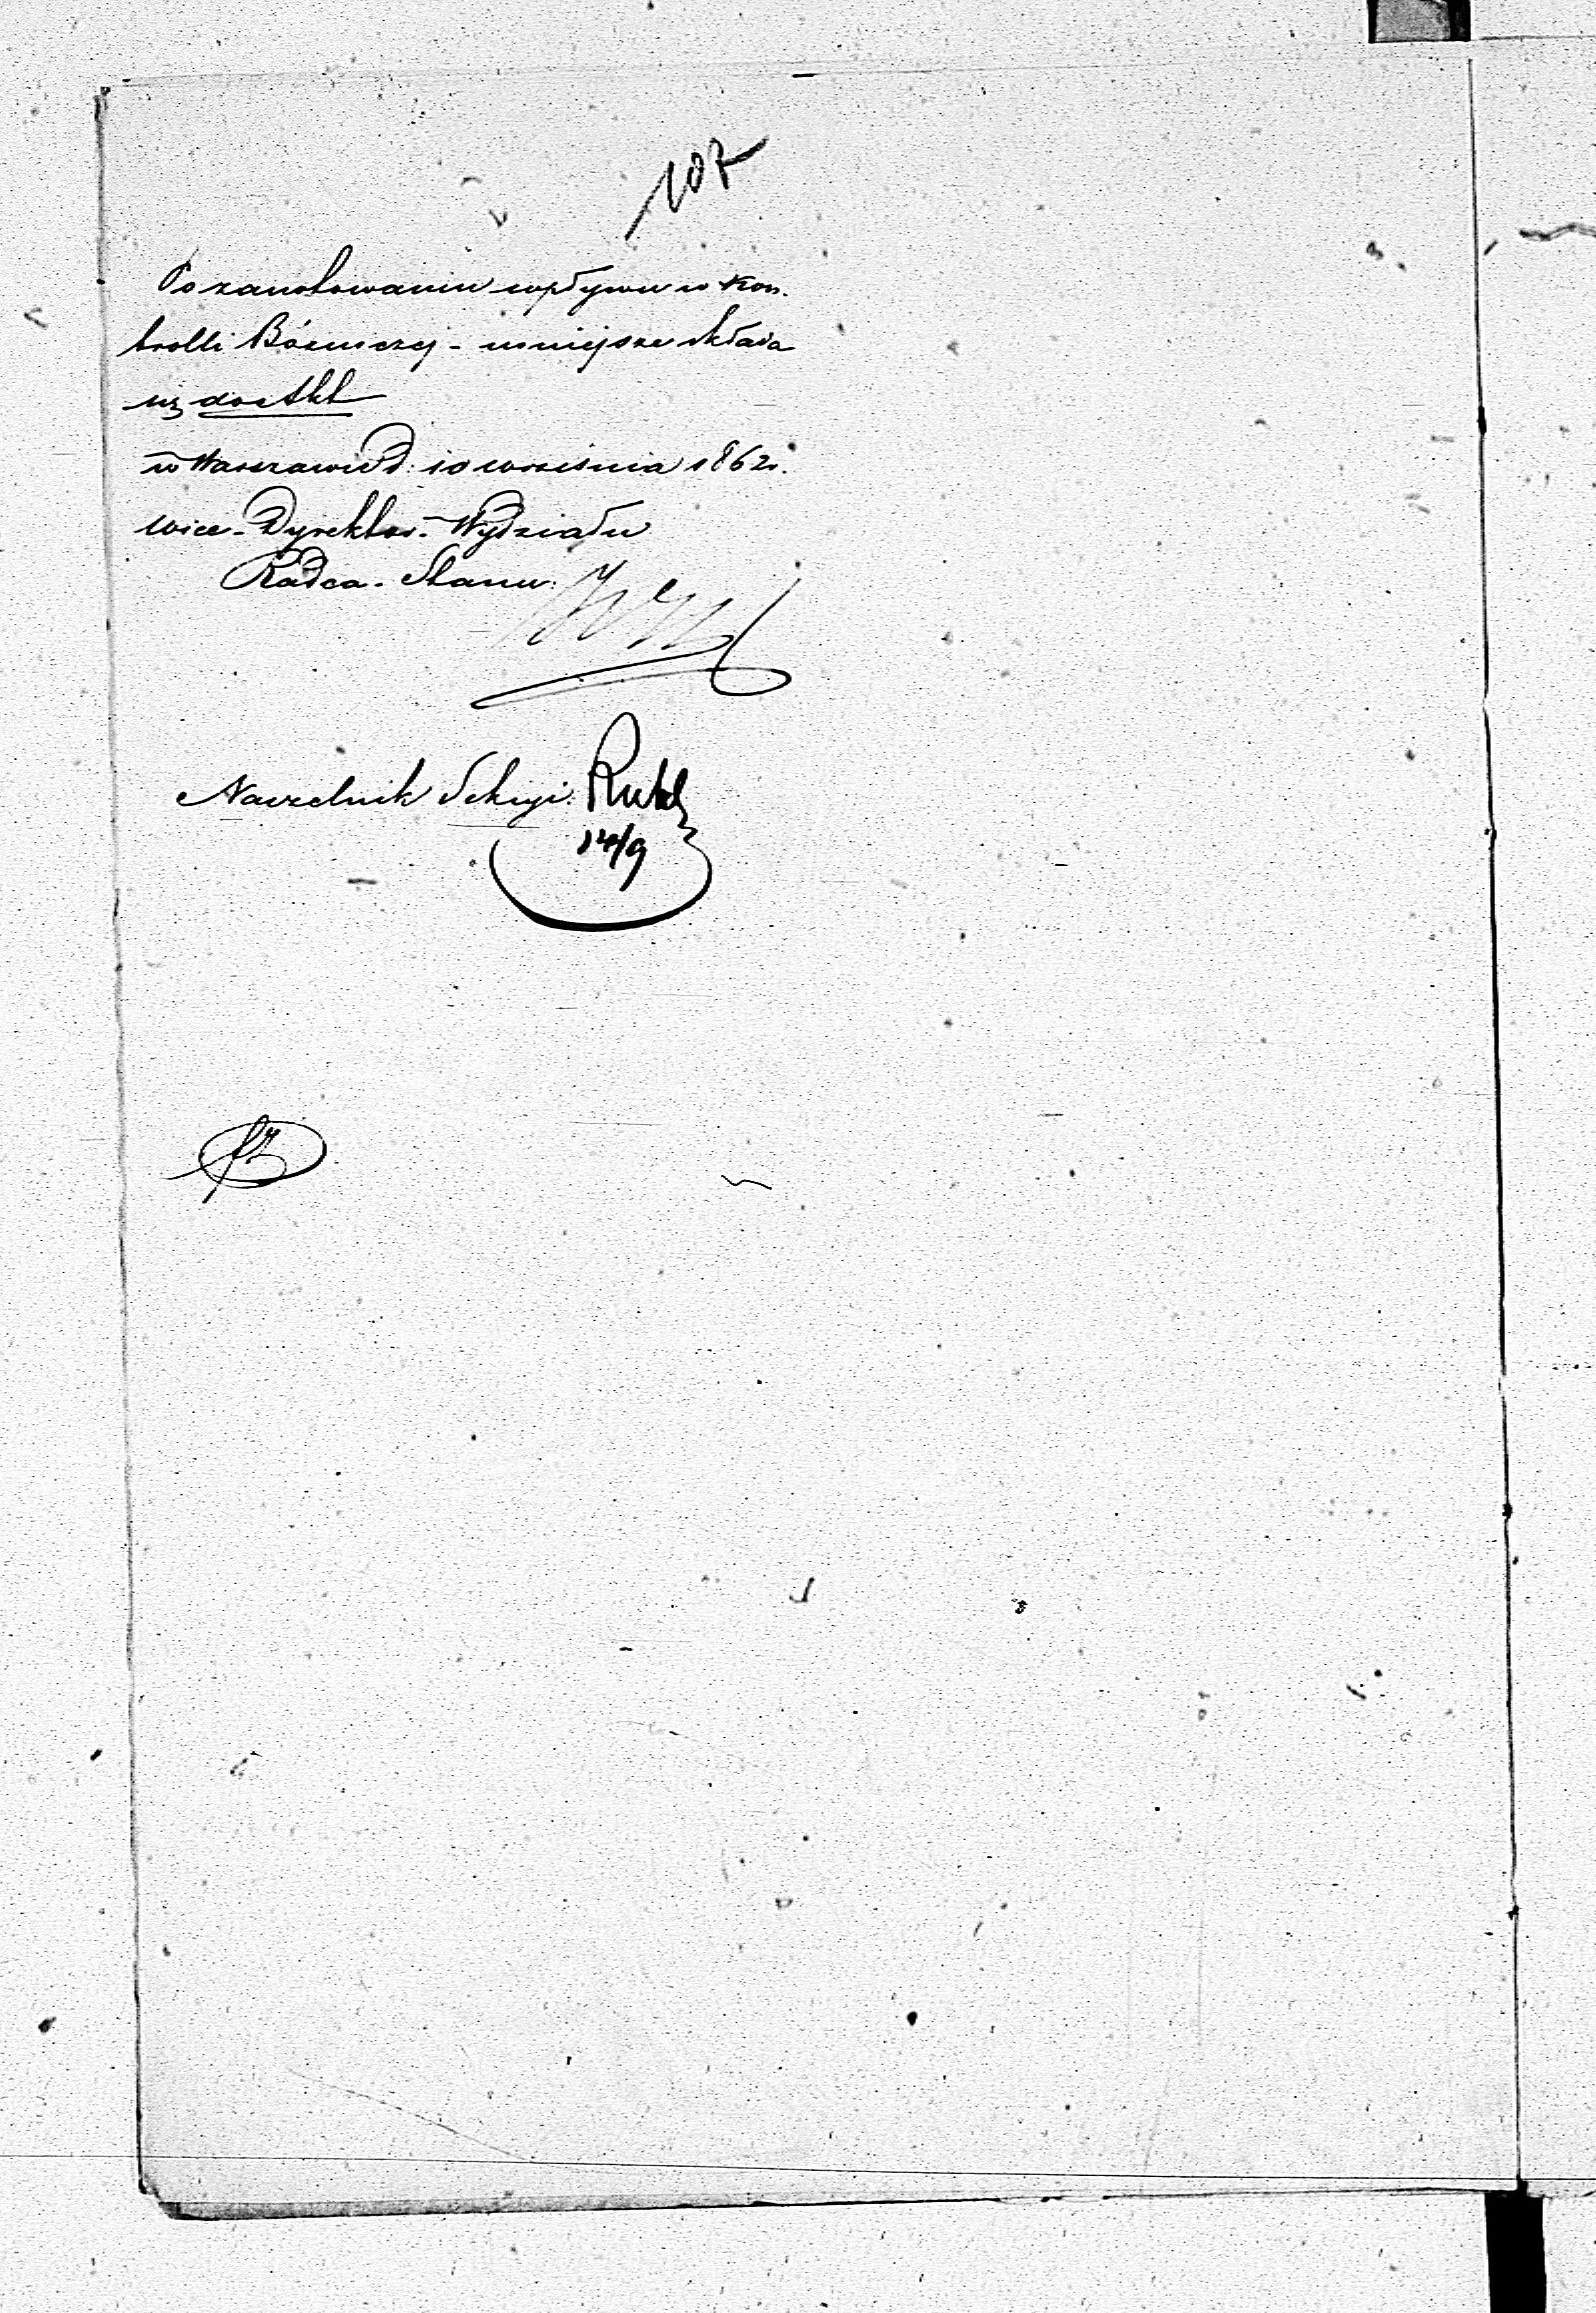 107
Po zanotowaniu wpływu w Kon-
trolli Bóżniczej - niniejsze składa
się do Akt
w Warszawie d: 10 września 1862 r.
Wice-Dyrektor Wydziału
Radca Stanu:
Naczelnik Sekcyi:
14/9